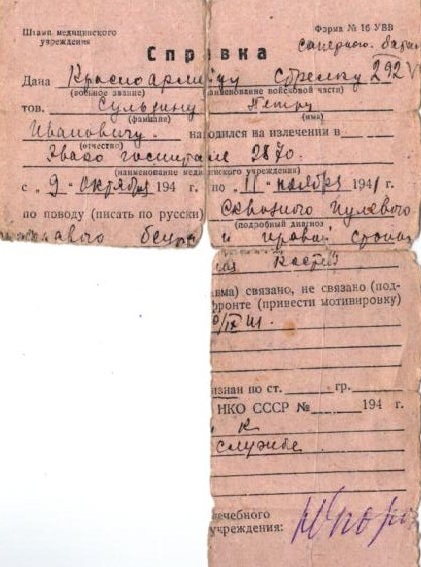 Штамп медицинского
учреждения
Форма № 16 УВВ
Справка
саперного. бата
Дана Красноармейцу стрелку 292
(военное звание) (наименование войсковой части)
тов. Сульзину Петру
(фамилия) (имя)
Ивановичу. находился на излечении в
(отчество)
Эвако госпитале 2870.
(наименование медицинского учреждения)
с „9 - октября 194 г. по „11 - ноября 1941 г.
по поводу (писать по русски) сквозного пулевого
(подробный диагноз
и правой стопы
кости
вма) связано, не связано (под-
фронте (привести мотивировку)
изнан по ст. гр.
НКО СССР № 194 г.
к
службе
ечебного
учреждения: